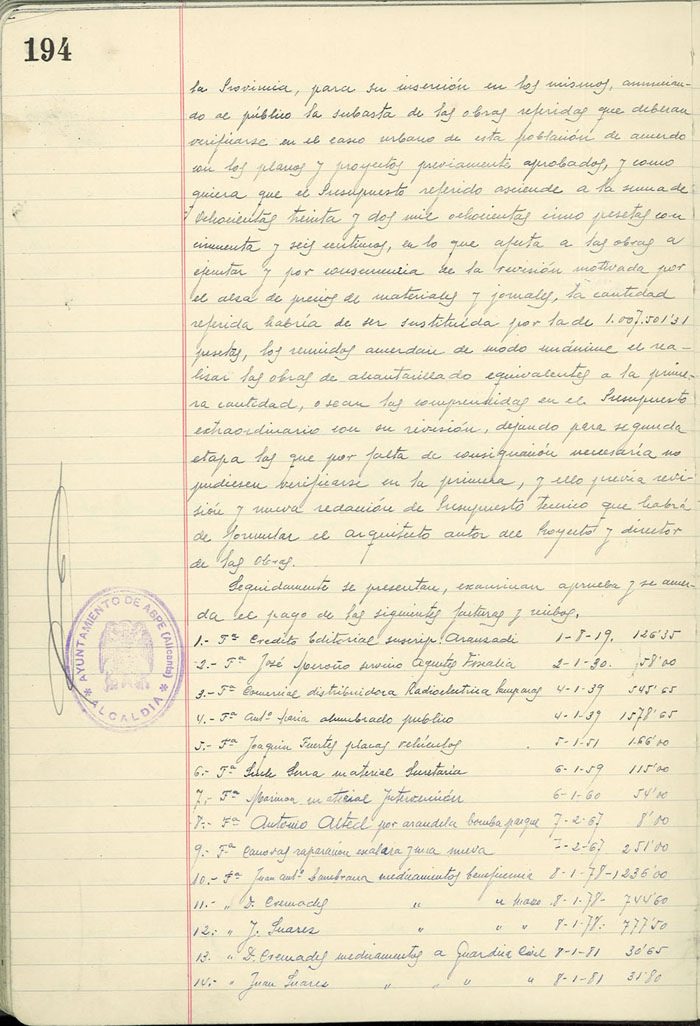 194
la Provincia, para su inserción en los mismos, anuncian-
do al público la subasta de las obras referidas que deberan
verificarse en el casco urbano de esta población de acuerdo
con los planos y proyectos previamente aprobados, y como
quiera que el Presupuesto referido asciende a la suma de
Ochocientas treinta y dos mil ochocientas cinco pesetas con
cincuenta y seis centimos, en lo que afecta a las obras a
ejecutar y por consecuencia de la revisión motivada por
el alza de precios de materiales y jornales, la cantidad
referida habría de ser sustituída por la de 1.007.501'31
pesetas, los reunidos acuerdan de modo unánime el rea-
lisar las obras de alcantarillado equivalentes a la prime-
ra cantidad, o sean las comprendidas en el Presupuesto
extraordinario con su revisión, dejando para segunda
etapa las que por falta de consignación necesaria no
pudiesen verificarse en la primera, y ello previa revi-
sión y nueva redación de Presupuesto tecnico que habrá
de formular el arquitecto autor del Proyecto y director
de las obras.
Seguidamente se presentan, examinan aprueba y se acuer-
da el pago de las siguientes facturas y recibos.
1.- Fª Credito Editorial suscrip. Aranzadi 1-8-19. 126'35
2.- Fª José servicio Agentes Fiscalia 2-1-30. 58'00
3.- Fª Comercial distribuidora Radioelectrica 4-1-39 545'65
4.- Fª Antº Maria alumbrado publico 4-1-39 1578'65
5.- Fª Joaquin Fuertes placas vehículos 5-1-51 166'00
6.- Fª Serra material Secretaria 6-1-59 115'00
7.- Fª material Intervención 6-1-60 54'00
8.- Fª Antonio Alted por arandela bomba parque 7-2-67 8'00
9.- Fª Canovas raparación escalera y una nueva 7-2-67 251'00
10.- Fª Juan Antº Zambrana medicamentos beneficencia 8-1-78-1236'00
11.- " D. Cremades " " 8-1-78- 744'60
12.- " J. Suares " " " 8-1-78.- 777'50
13. " D. Cremades medicamentos a Guardia Civil 8-1-81 30'65
14.- " Juan Suares " " " " 8-1-81 31'80
AYUNTAMIENTO DE ASPE (Alicante)
* ALCALDIA *